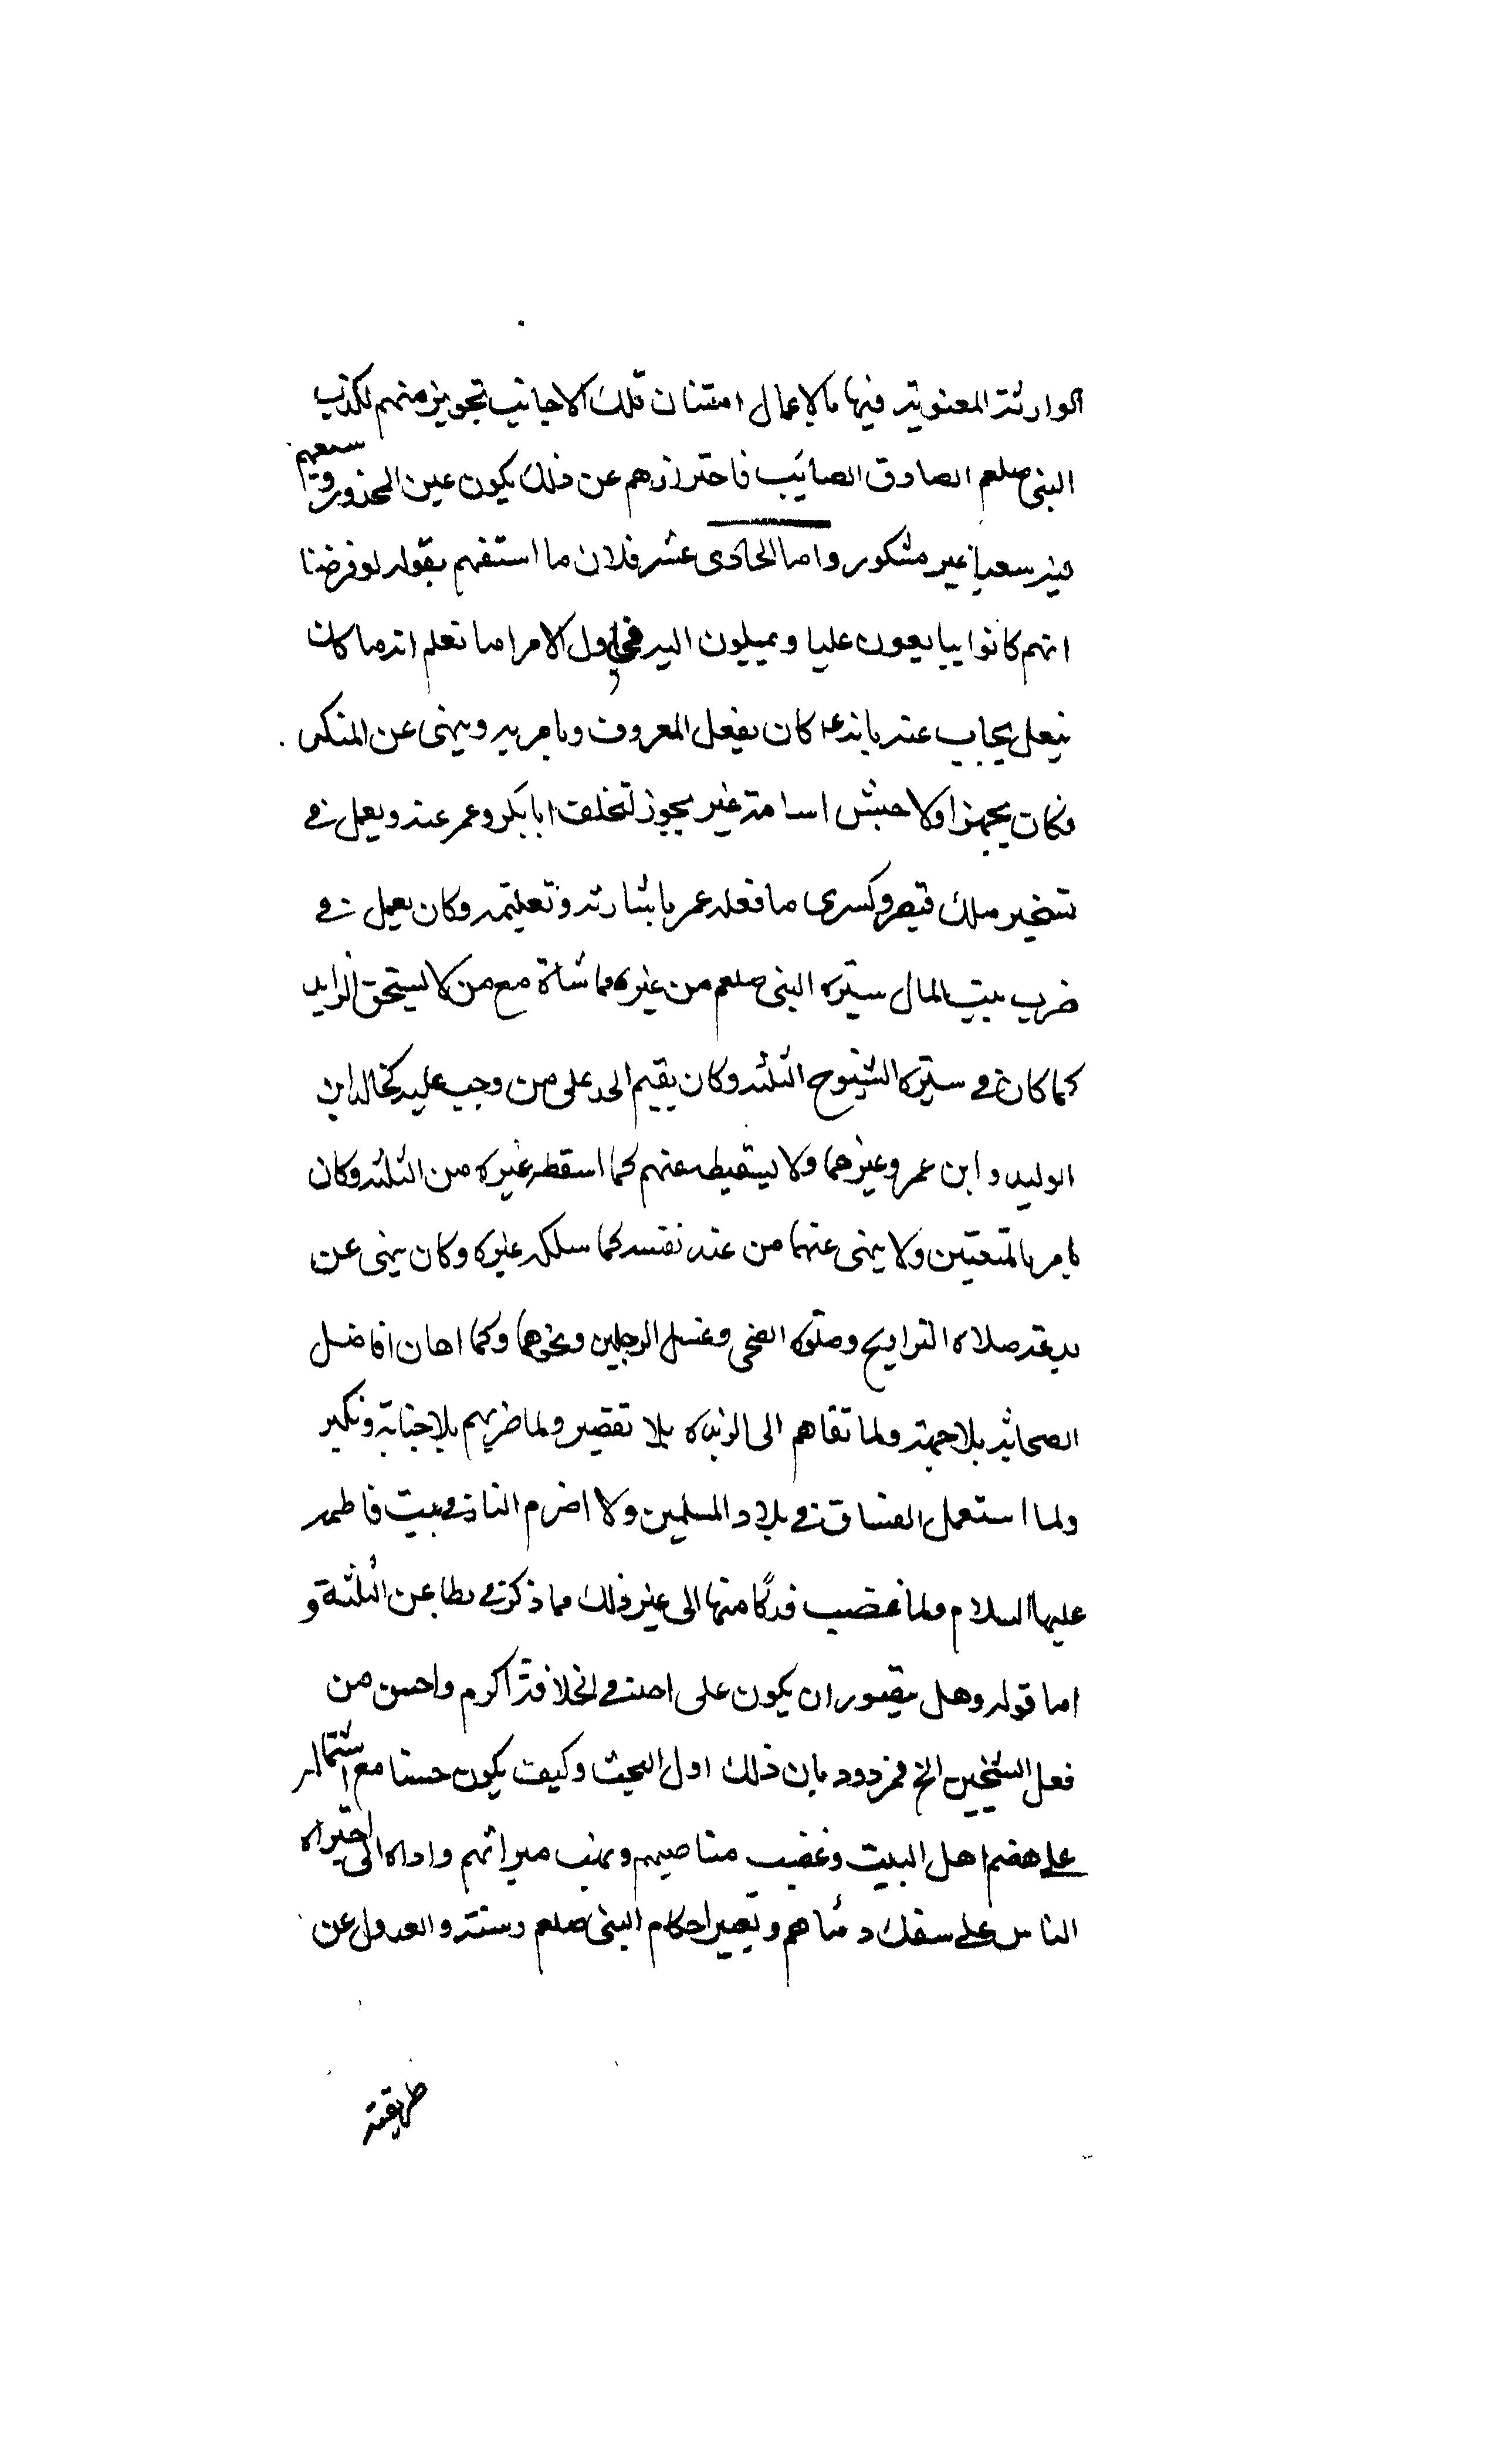 الوارثة المعنوية فيها بالاعمال امتنان تلك الاجانب تجويز منهم لكذب
النبى صلعم الصادق الصايب فاحترازهم عن ذلك يكون عين المحذور و سعيهم
فيه سعيا غير مشكور واما الحادى عشر فلان ما استفهم بقوله لو فرضنا
انهم كانوا يبايعون عليا ويميلون اليه فى اول الامر اما تعلم انه ما كان
يفعل يجاب عنه بانه ع كان يفعل المعروف ويامر به وينهى عن المنكر
فكان يجهز اولا جيش اسامة غير مجوز لتخلف ابابكر وعمر عنه ويعمل فى
تسخير ملك قيصر وكسرى ما فعله عمر باشارته وتعليمه وكان يعمل فى
ضرب بيت المال سيرة النبى صلعم من غيره مماشاة مع من لا يستحق الزايد
كما كان فى سيرة الشيوخ الثلثه وكان يقيم الحد على من وجب عليه كخالد ابن
الوليد وابن عمر وغيرهما ولا يسقط عنهم كما اسقطه غيره من الثلثه وكان
يامر بالمتعتين ولا ينهى عنهما من عند نفسه كما سلكه غيره وكان ينهى عن
بدعة صلاه التراويح وصلوة الضحى وغسل الرجلين ونحوهما وكما اهان افاضل
الصحابه بلا جهة ولما نفاهم الى الربذه بلا تقصير ولما ضربهم بلا جناية ونكير
ولما استعمل الفساق فى بلاد المسلمين ولا اضرم النار فى بيت فاطمه
عليها السلام ولما غضب فدكا منها الى غير ذلك مما ذكر فى مطاعن الثلثة و
اما قوله وهل يتصور ان يكون على احد فى الخلافة اكرم واحسن من
فعل الشيخين الخ فمردود بان ذلك اول البحث وكيف يكون حسنا مع اشتماله
على هضم اهل البيت وغصب مناصبهم ونهب ميراثهم واداه الى اجتراه
الناس على سفك دمائهم وتغيير احكام النبى صلعم وسنته والعدول عن
طريقته